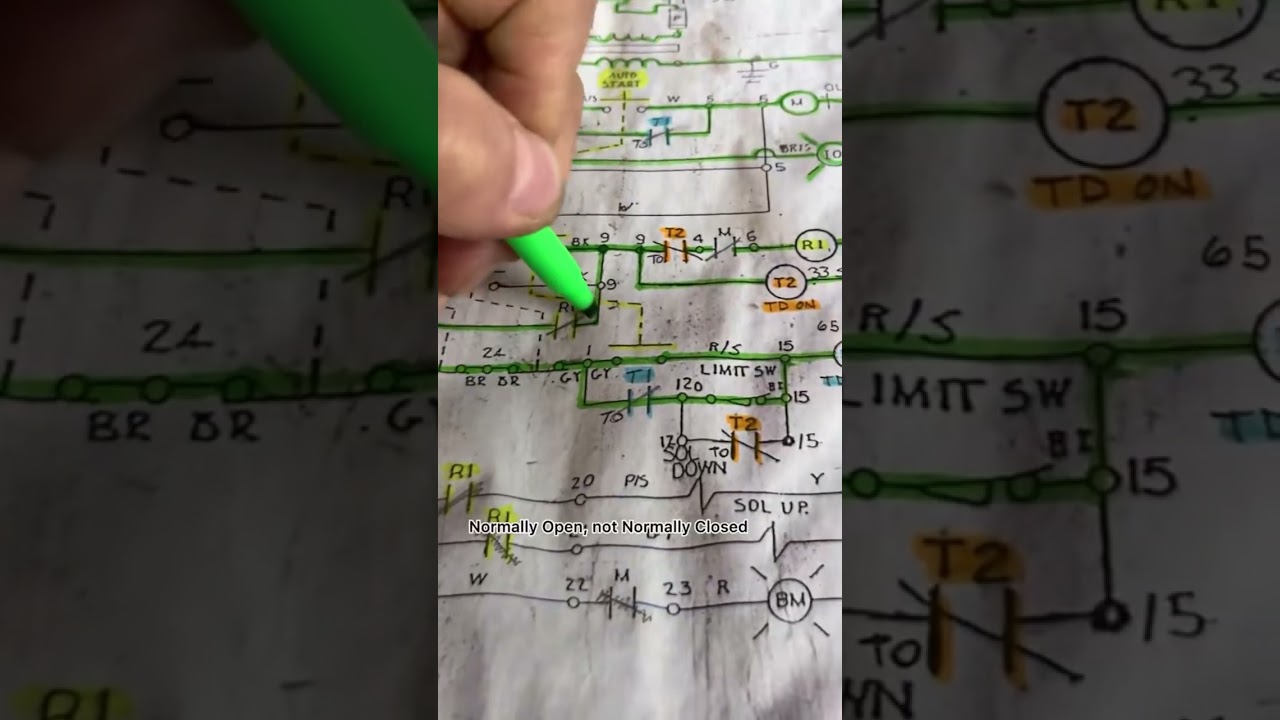 AUTO
START
W 5 5 M OL
T1
TO
BRIS
5
W
BK 9 9 T2 4 M 6 R1
TO
9 T2 33
TD ON
R1
65
24 1 R/S 15
BR BR GY GY LIMIT SW
T1 120 BI 15
TO
T2
12 TO 15
SOL
DOWN
R1 20 P/S Y
SOL UP.
R1
Normally Open, not Normally Closed
W 22 M 23 R BM
R1
T2 33 S
TD ON
R1
7 7
65
24 R/S 15
BR BR G LIMIT SW
BI 15
T2
TO 15
WN
R1